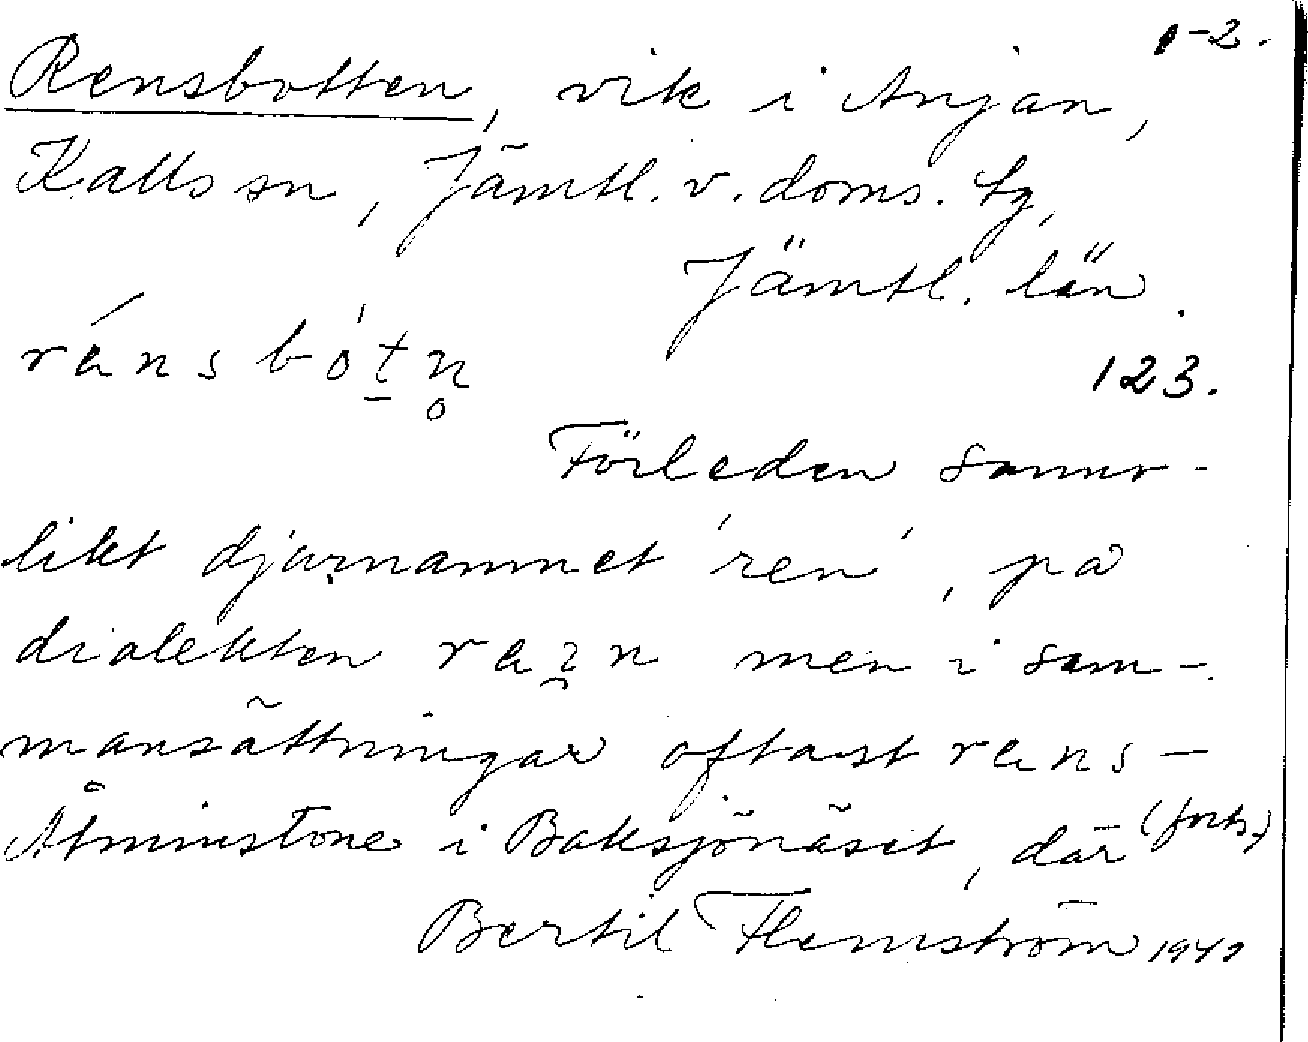 1-2.
Rensbotten, vik i Anjan,
Kalls sn, Jämtl. v. doms. tg,
Jämtl. län.
ránsbótn̥
123.
Förleden sanno-
likt djurnamnet 'ren', på
dialekten men i sam-
mansättningar oftast rans-
Åtminstone i Baksjönäset, där (forts.)
Bertil Flemström